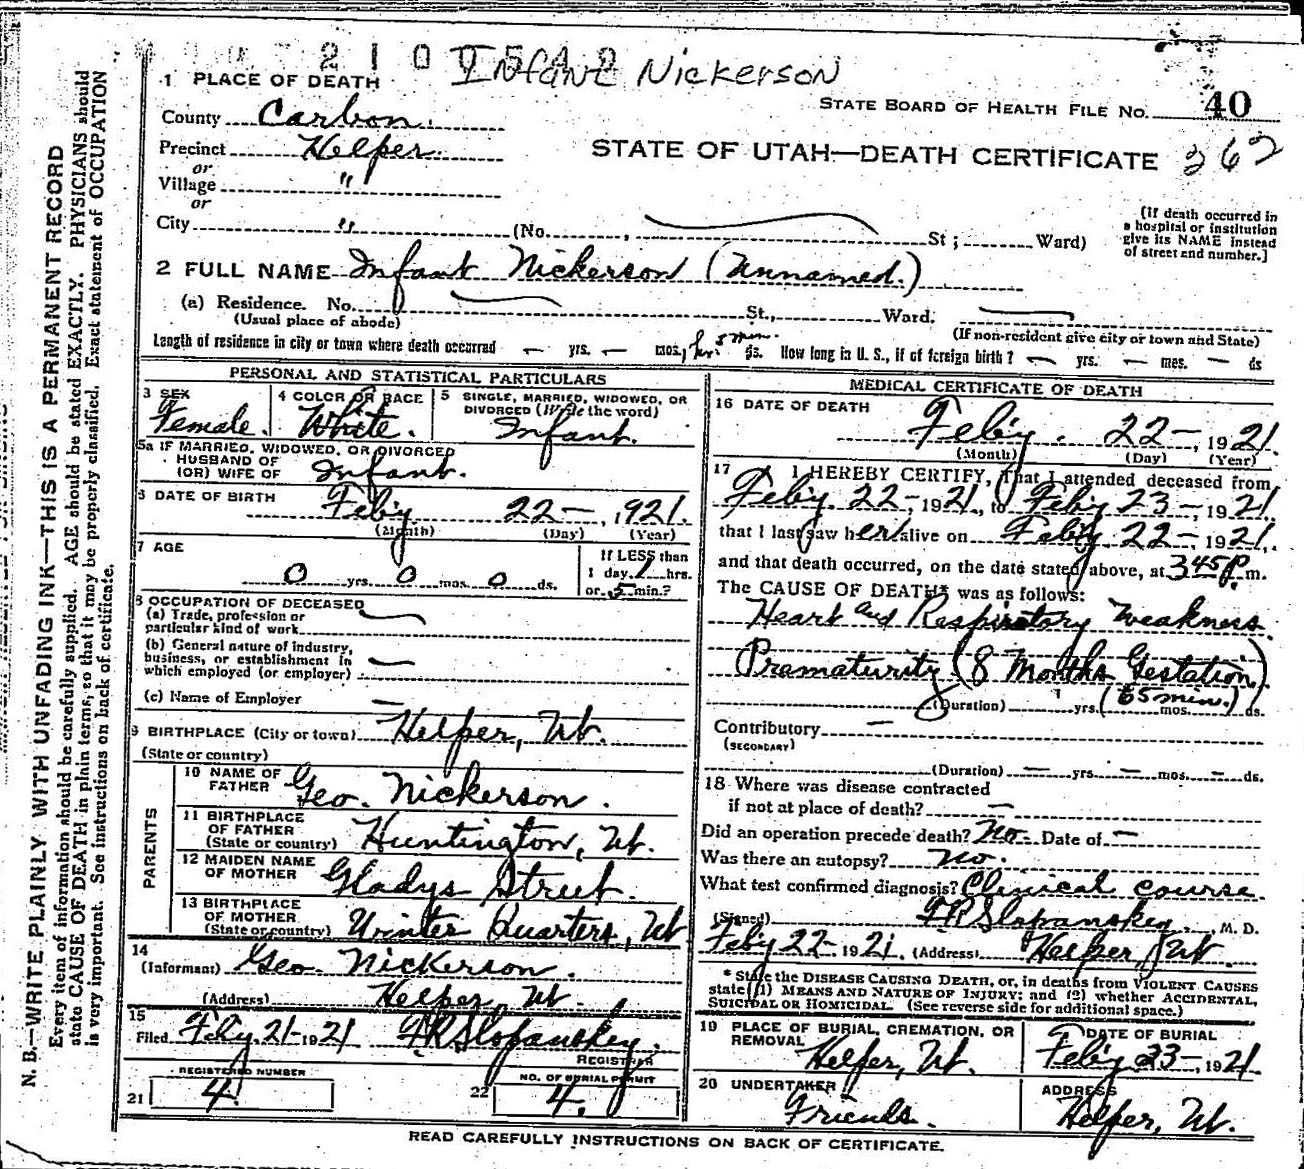 2100542
Infant Nickerson
1 PLACE OF DEATH
STATE BOARD OF HEALTH FILE NO. 40
County Carbon.
Precinct Helper.
STATE OF UTAH—DEATH CERTIFICATE 362
or
Village "
or
City " (No. , St ; Ward)
(If death occurred in
a hospital or institution
give its NAME instead
of street and number.]
2 FULL NAME Infant Nickerson (Unnamed.)
(a) Residence. No. St., Ward.
(Usual place of abode)
(If non-resident give city or town and State)
Length of residence in city or town where death occurred — yrs. — mos, hr. 5 min. ds. How long in U. S., if of foreign birth? — yrs. — mes. — ds
PERSONAL AND STATISTICAL PARTICULARS
3 SEX
Female.
4 COLOR OR RACE
White.
5 SINGLE, MARRIED, WIDOWED, OR
DIVORCED (Write the word)
Infant.
5a IF MARRIED, WIDOWED, OR DIVORCED
HUSBAND OF
(OR) WIFE OF Infant.
6 DATE OF BIRTH
Feb'y 22—, 1921.
(Month) (Day) (Year)
7 AGE
0 yrs. 0 mos. 0 ds.
If LESS than
1 day, 1 hrs.
or 5 min.?
8 OCCUPATION OF DECEASED
(a) Trade, profession or
particular kind of work
(b) General nature of industry,
business, or establishment in
which employed (or employer) —
(c) Name of Employer —
9 BIRTHPLACE (City or town) Helper, Ut.
(State or country)
PARENTS
10 NAME OF
FATHER Geo. Nickerson.
11 BIRTHPLACE
OF FATHER
(State or country) Huntington, Ut.
12 MAIDEN NAME
OF MOTHER Gladys Street.
13 BIRTHPLACE
OF MOTHER
(State or country) Winter Quarters, Ut
14
(Informant) Geo. Nickerson.
(Address) Helper, Ut.
15
Filed Feb'y. 21-1921 F.R. Slopanskey.
REGISTRAR
REGISTERED NUMBER
21 4
NO. OF BURIAL PERMIT
22 4.
MEDICAL CERTIFICATE OF DEATH
16 DATE OF DEATH
Feb'y. 22—, 1921.
(Month) (Day) (Year)
17 I HEREBY CERTIFY, That I attended deceased from
Feb'y. 22-, 1921., to Feb'y 23—, 1921
that I last saw her alive on Feb'y 22—, 1921,.
and that death occurred, on the date stated above, at 3 45 P. m.
The CAUSE OF DEATH* was as follows:
Heart and Respiratory Weakness.
Prematurity (8 Months Gestation)
(Duration) yrs. (65 min.) mos. ds.
Contributory —
(SECONDARY)
(Duration) — yrs. — mos. — ds.
18 Where was disease contracted
if not at place of death? —
Did an operation precede death? No. Date of —
Was there an autopsy? No.
What test confirmed diagnosis? Clinical course
(Signed) F.R. Slopanskey, M. D.
Feb'y 22-1921. (Address) Helper, Ut.
* State the DISEASE CAUSING DEATH, or, in deaths from VIOLENT CAUSES
state (1) MEANS AND NATURE OF INJURY; and (2) whether ACCIDENTAL,
SUICIDAL OR HOMICIDAL. (See reverse side for additional space.)
19 PLACE OF BURIAL, CREMATION, OR
REMOVAL
Helper, Ut.
DATE OF BURIAL
Feb'y 23-, 1921.
20 UNDERTAKER
Friends.
ADDRESS
Helper, Ut.
READ CAREFULLY INSTRUCTIONS ON BACK OF CERTIFICATE.
N. B.—WRITE PLAINLY WITH UNFADING INK—THIS IS A PERMANENT RECORD
Every item of information should be carefully supplied. AGE should be stated EXACTLY. PHYSICIANS should
state CAUSE OF DEATH in plain terms, so that it may be properly classified. Exact statement of OCCUPATION
is very important. See instructions on back of certificate.